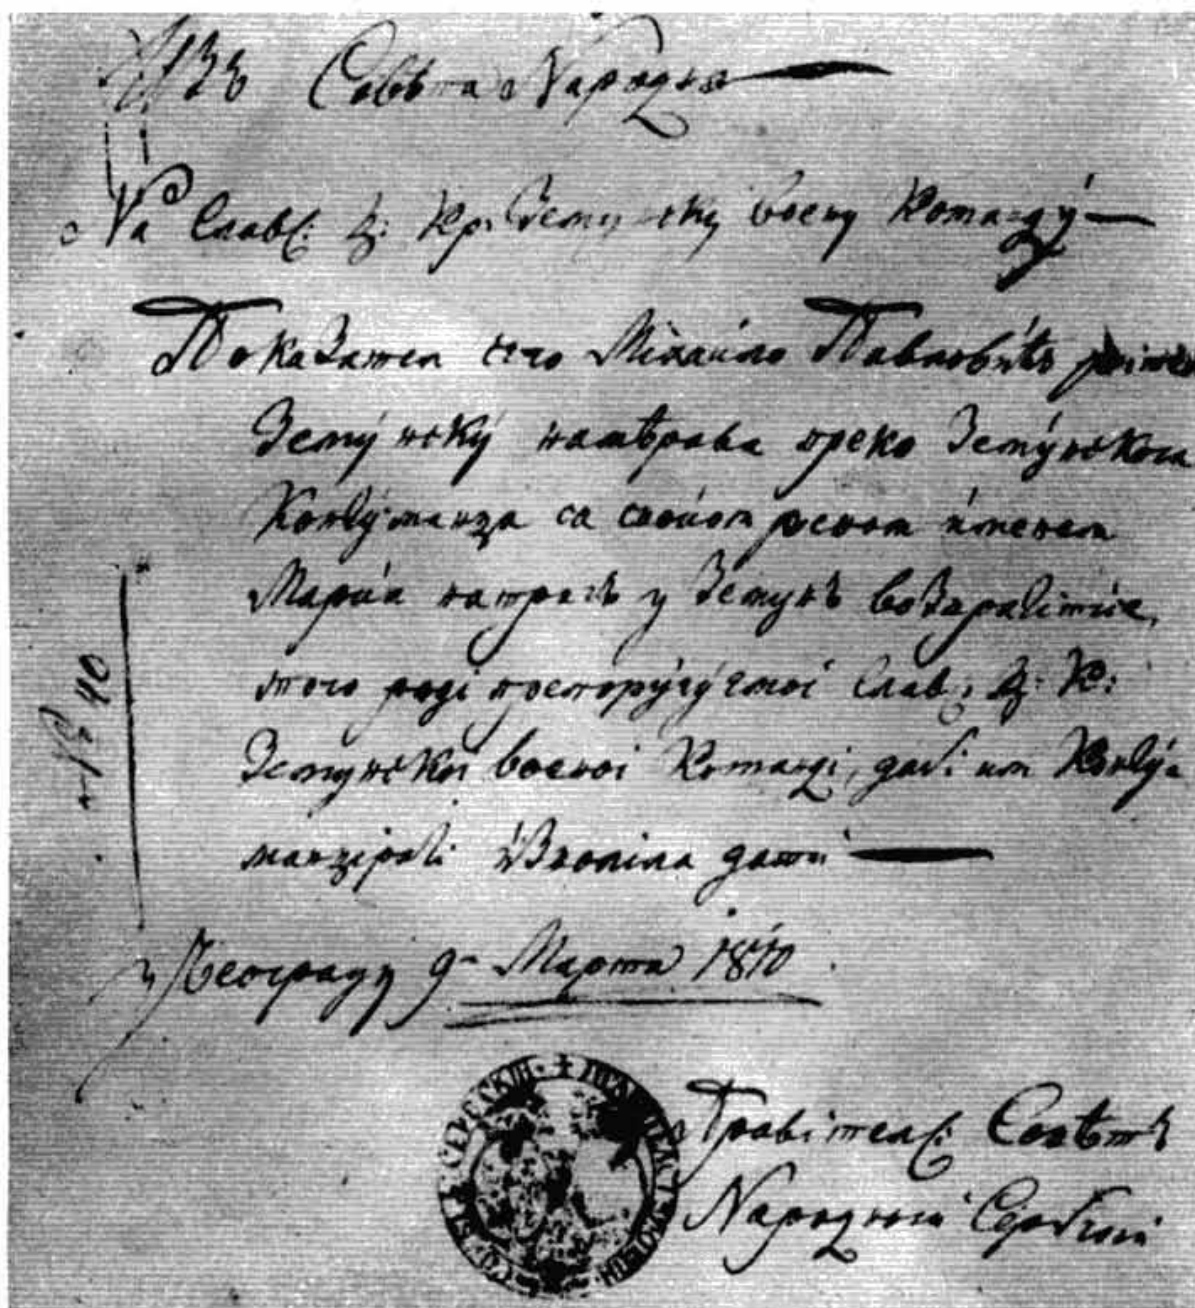 Изъ Совѣта Народна
На Славс: Ц: Кр. Земунску воену Команду
Показател сего Міхаило Павловићъ
Земунскý намѣрава преко Земýнскога
Контýманца са своіом іменем
Маріа натрагъ у Земунъ возвратітися,
тога ради Слав: Ц: К:
Земунскоі военоі Команді, да би им Контý-
манціраті ізволила дати
№ 40
у Београду 9 Марта 1810
Правітелс: Совѣтъ
Народній Сербскій